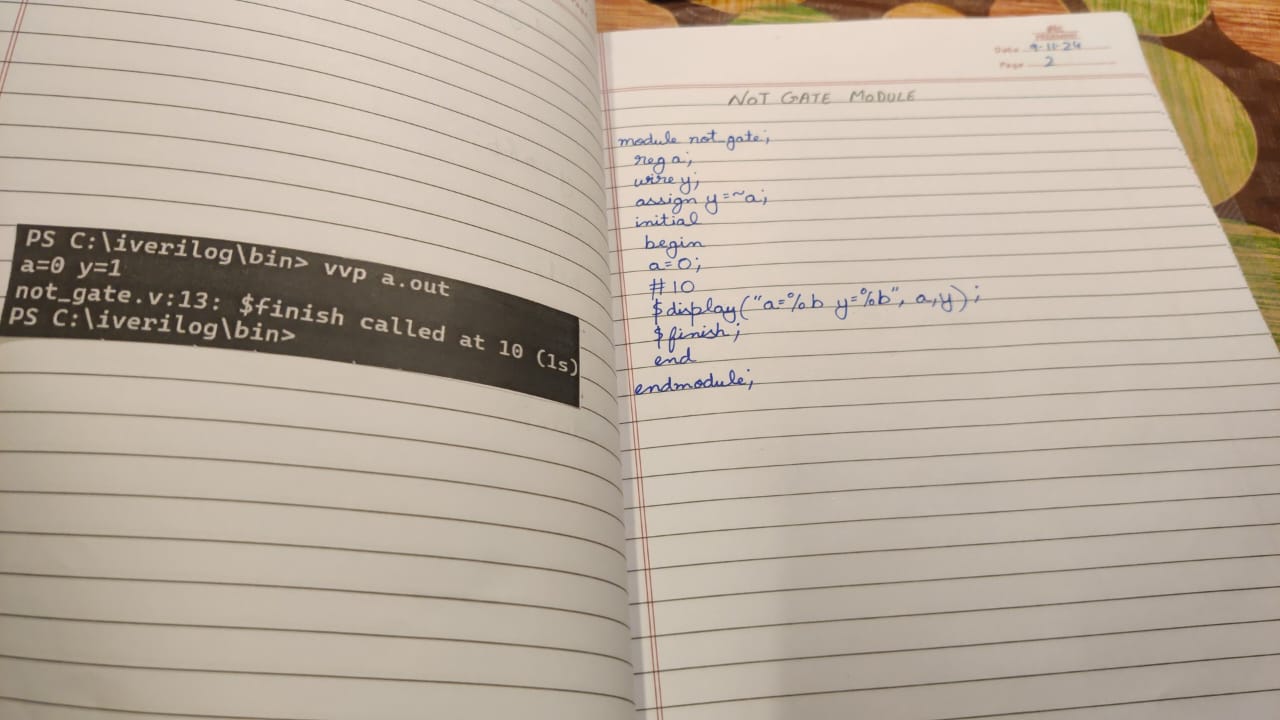 PS C:\iverilog\bin> vvp a.out
a=0 y=1
not_gate.v:13: $finish called at 10 (1s)
PS C:\iverilog\bin>
Date 9-11-24
Page 2
NOT GATE MODULE
module not_gate;
reg a;
wire y;
assign y=~a;
initial
begin
a=0;
#10
$display("a=%b y=%b", a,y);
$finish;
end
endmodule;